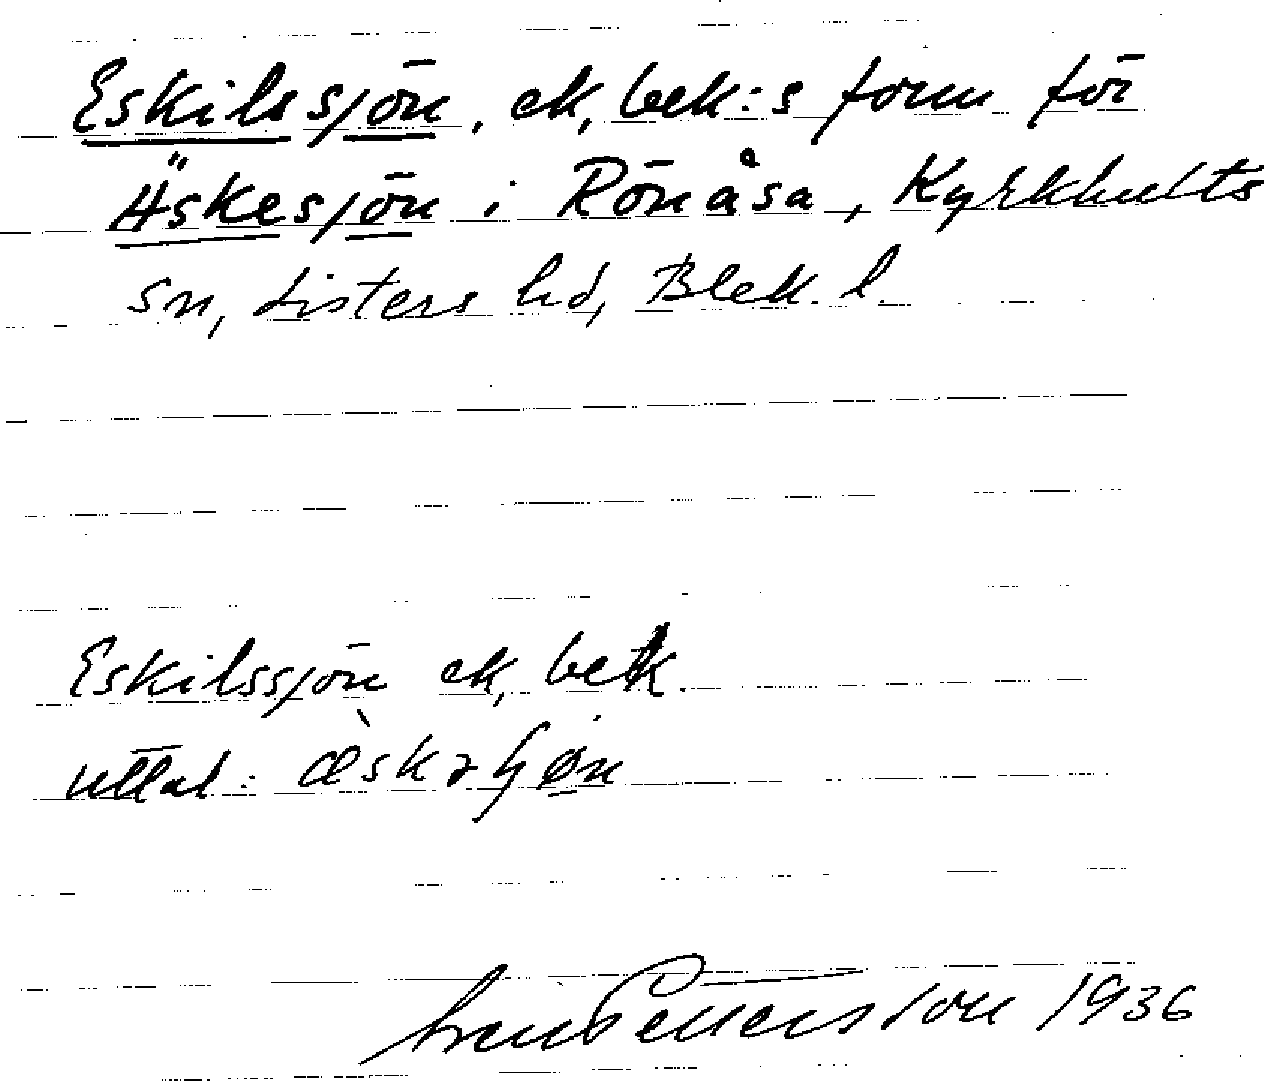 Eskilssjön, ek, bek:s form för
Äskesjön i Rönåsa, Kyrkhults
sn, Listers hd, Blek. l.
Eskilssjön ek, bek.
uttal:
Sven Pettersson 1936